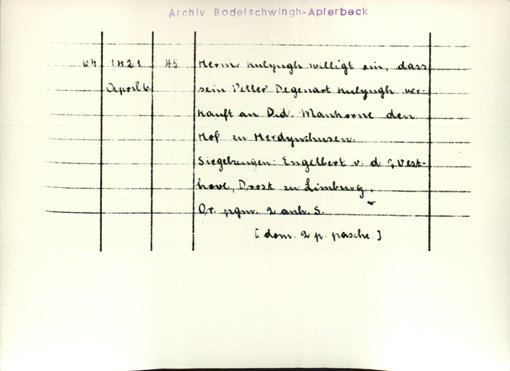 Archiv Bodelschwingh-Aplerbeck
64 1421 45 Herm hulyngh willigt ein, dass
April 6. sein Vetter Degenart hulyngh ver-
kauft an Did. Mankorne den
Hof zu Herdynchusen.
Siegelzeugen: Engelbert v. d. West-
hove, Drost zu Limburg.
Or. pgm. 2 anh. S.
[dom. 2 p. pasche.]